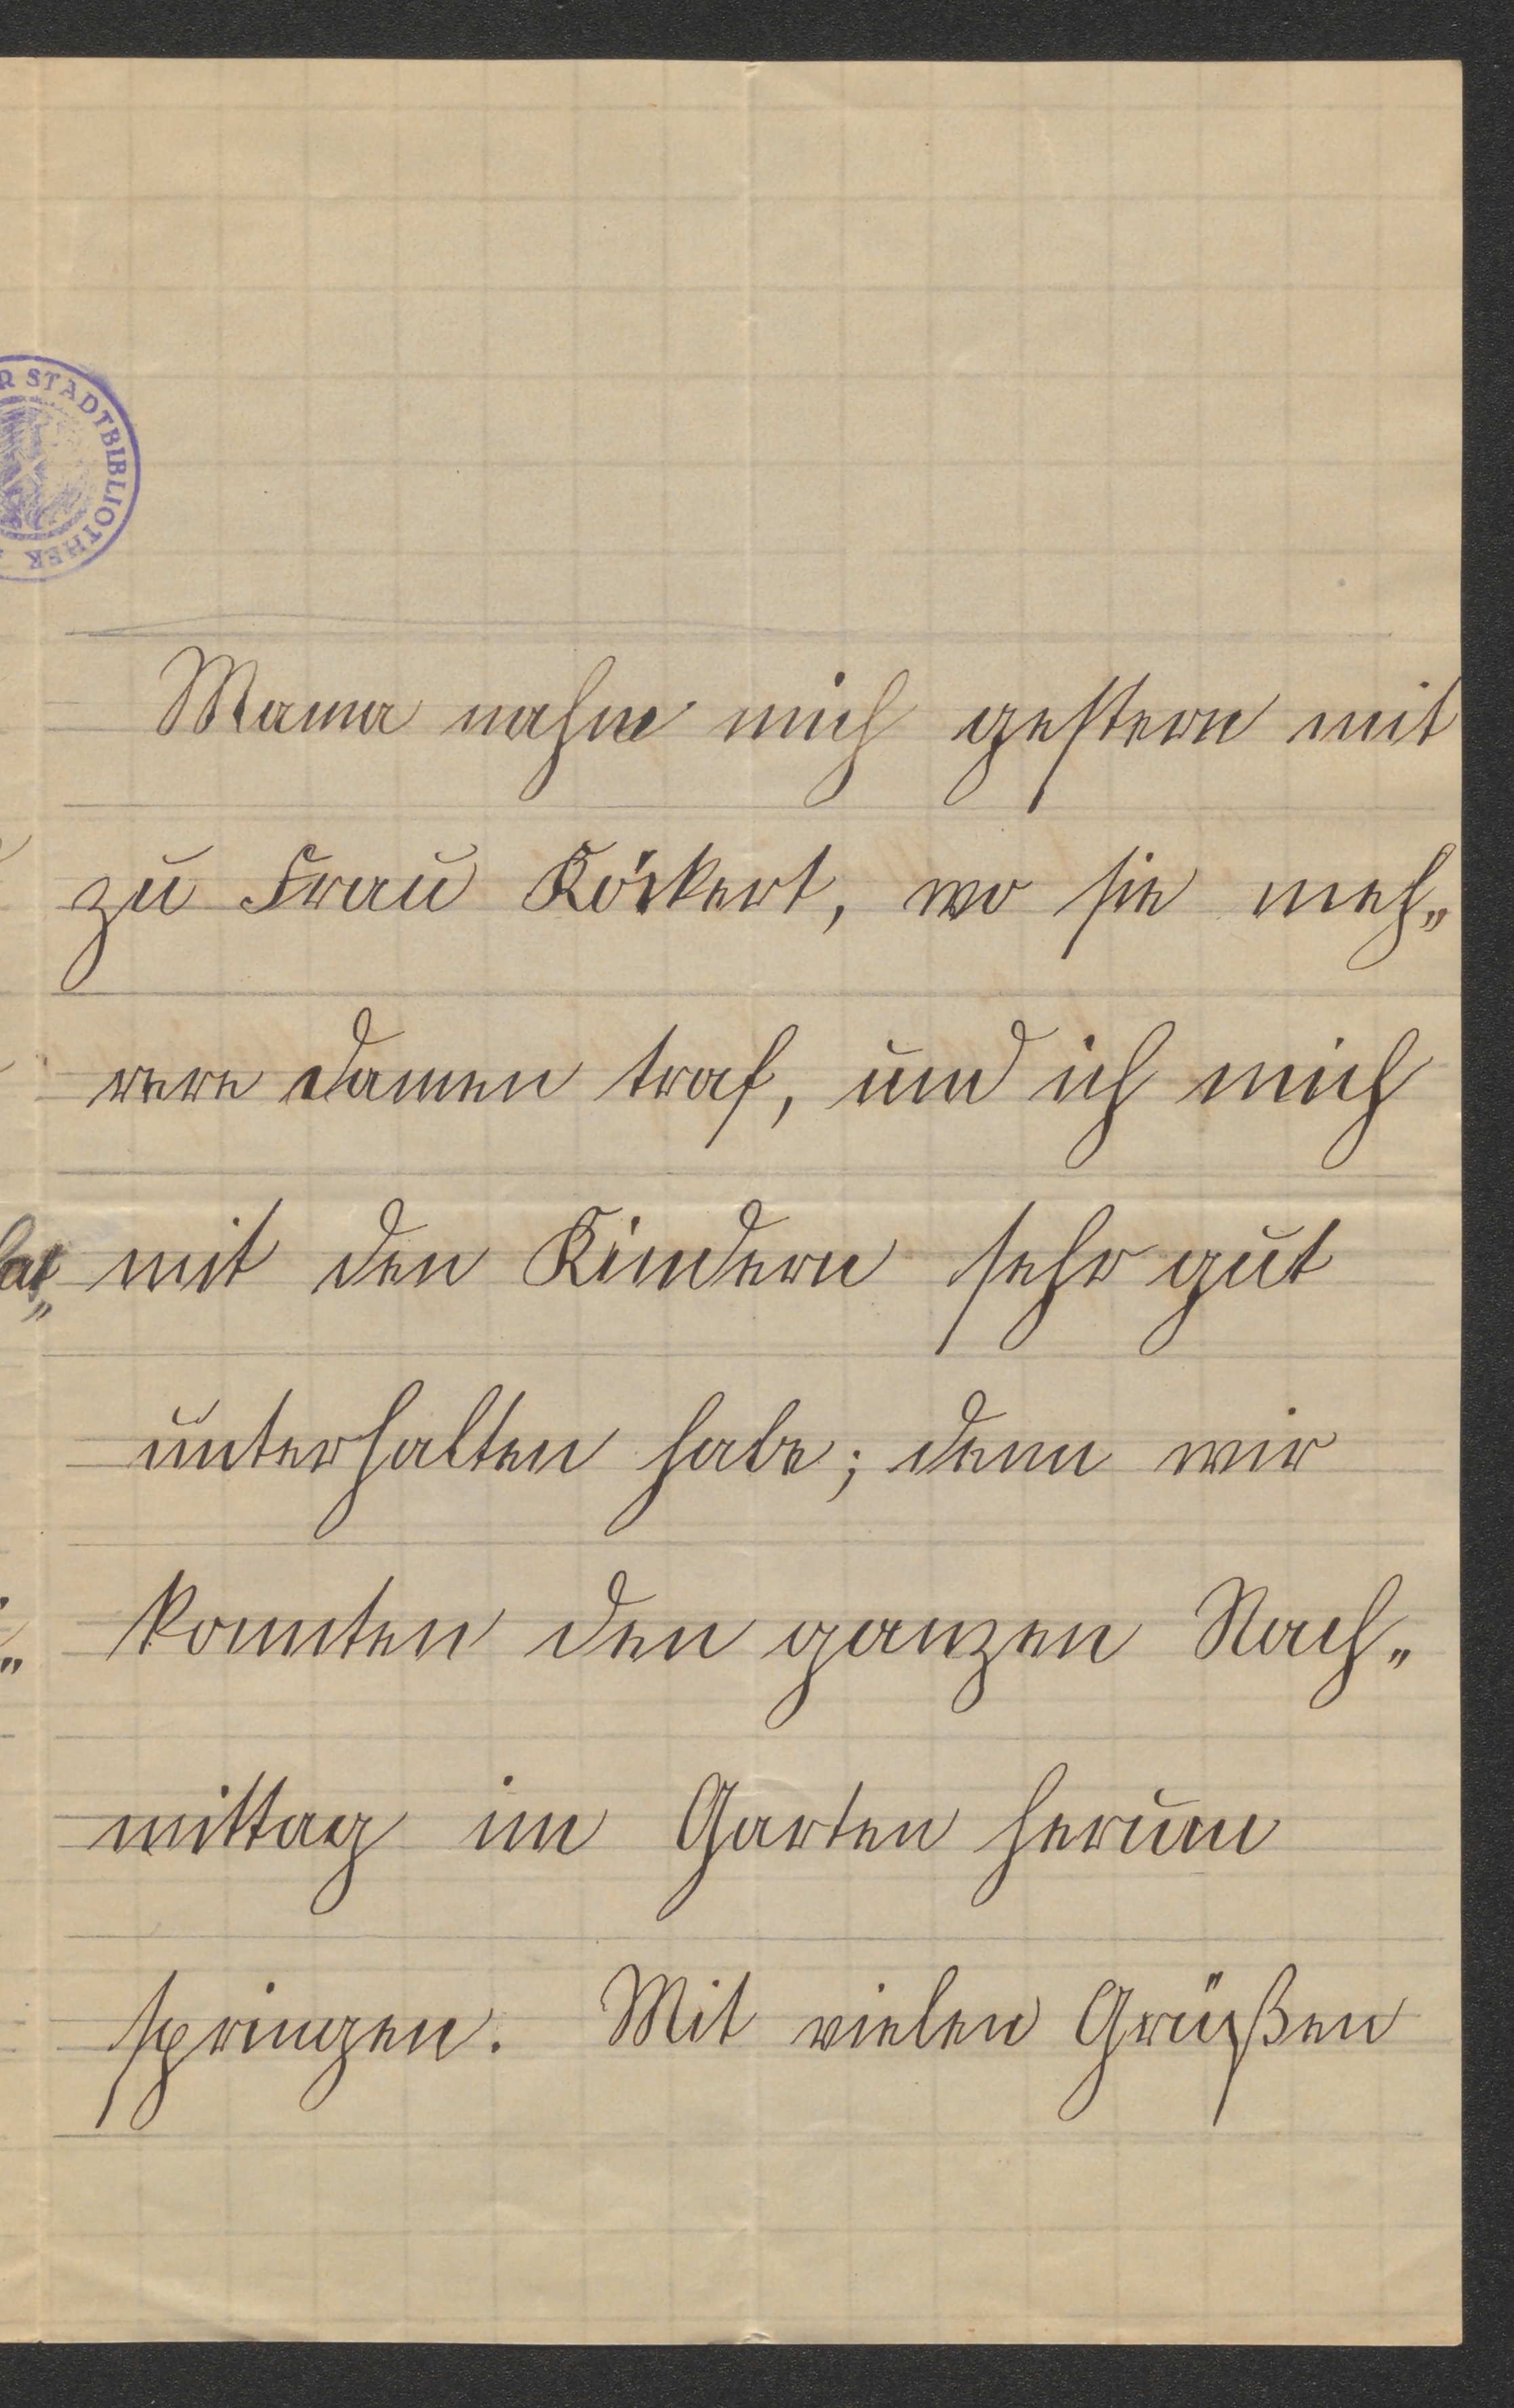 R STADTBIBLIOTHEK
Mama nahm mich gestern mit
zu Frau Köckert, wo sie meh„
rere Damen traf, und ich mich
mit den Kindern sehr gut
unterhalten habe; denn wir
konnten den ganzen Nach„
mittag im Garten herum
springen. Mit vielen Grüßen